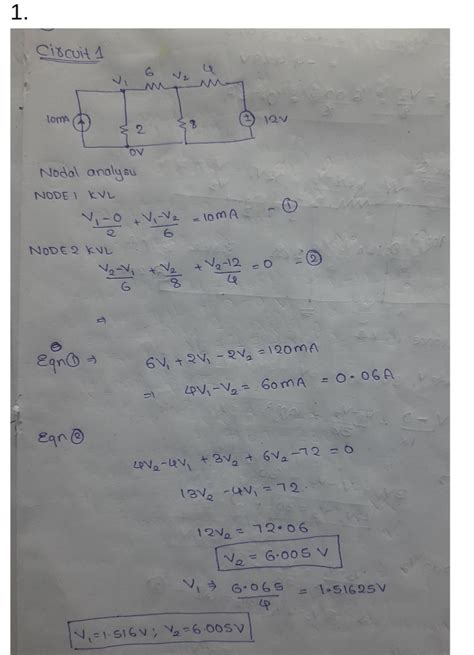 1.
Circuit 1
V₁ 6 V₂ 4
10mA 2 8 12V
0V
Nodal analysis
NODE 1 KVL
V₁-0/2 + V₁-V₂/6 = 10mA - ①
NODE 2 KVL
V₂-V₁/6 + V₂/8 + V₂-12/4 = 0 - ②
⇒
Eqn ① ⇒ 6V₁ + 2V₁ - 2V₂ = 120mA
⇒ 4V₁ - V₂ = 60mA = 0.06A
Eqn ②
4V₂ - 4V₁ + 3V₂ + 6V₂ - 72 = 0
13V₂ - 4V₁ = 72
12V₂ = 72.06
V₂ = 6.005 V
V₁ ⇒ 6.065/4 = 1.51625V
V₁ = 1.516V ; V₂ = 6.005V